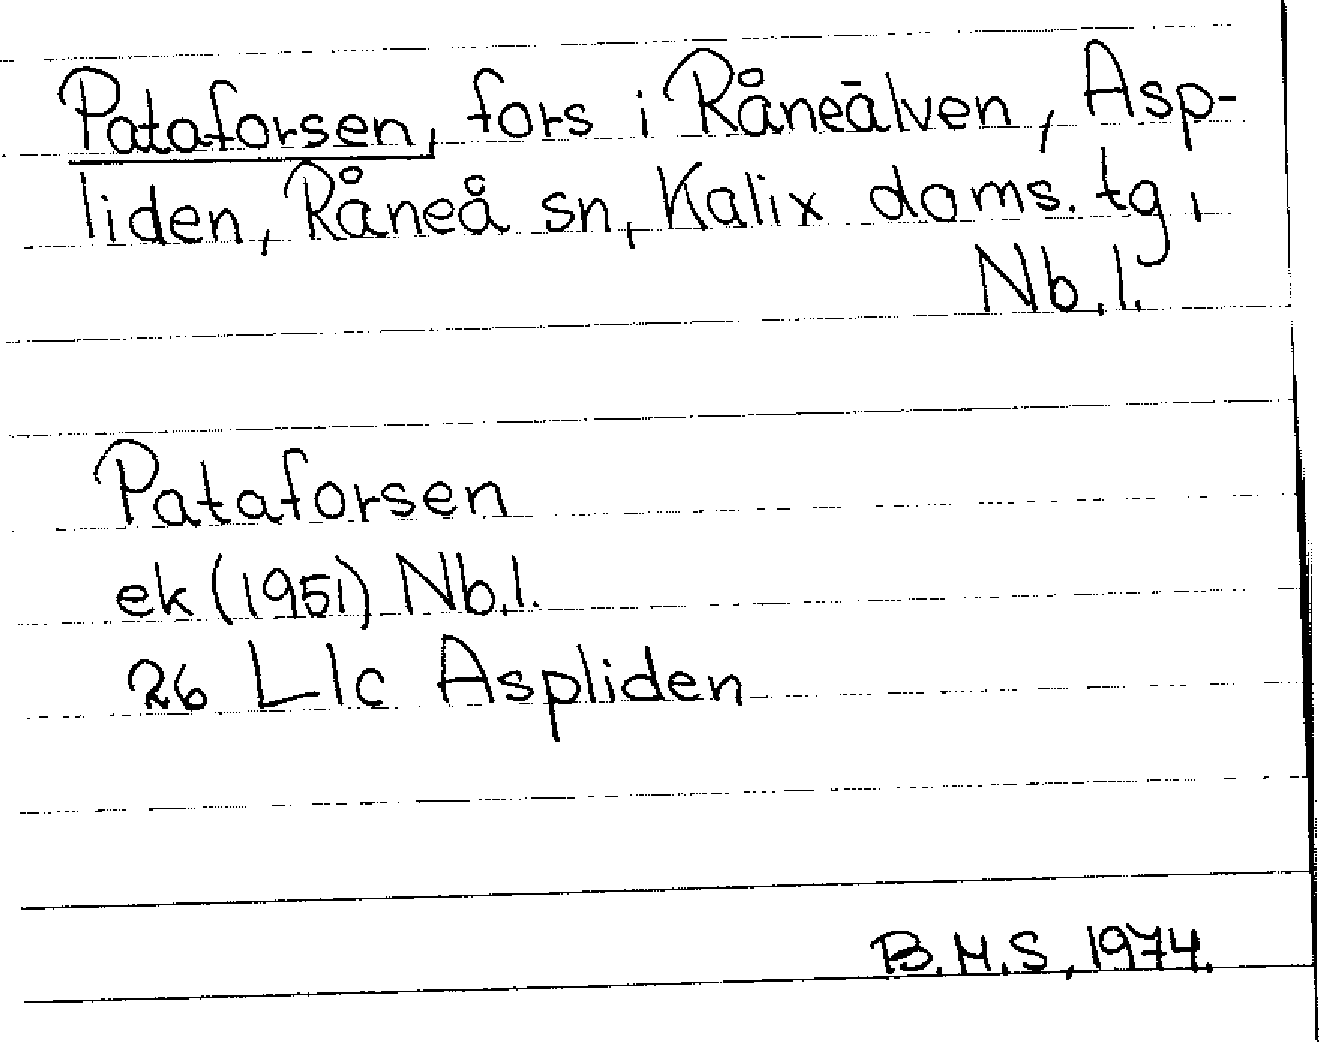 Pataforsen, fors i Råneälven, Asp-
liden, Råneå sn, Kalix doms. tg,
Nb.l.
Pataforsen
ek (1951) Nb.l.
26 L1c Aspliden
B.M.S, 1974.